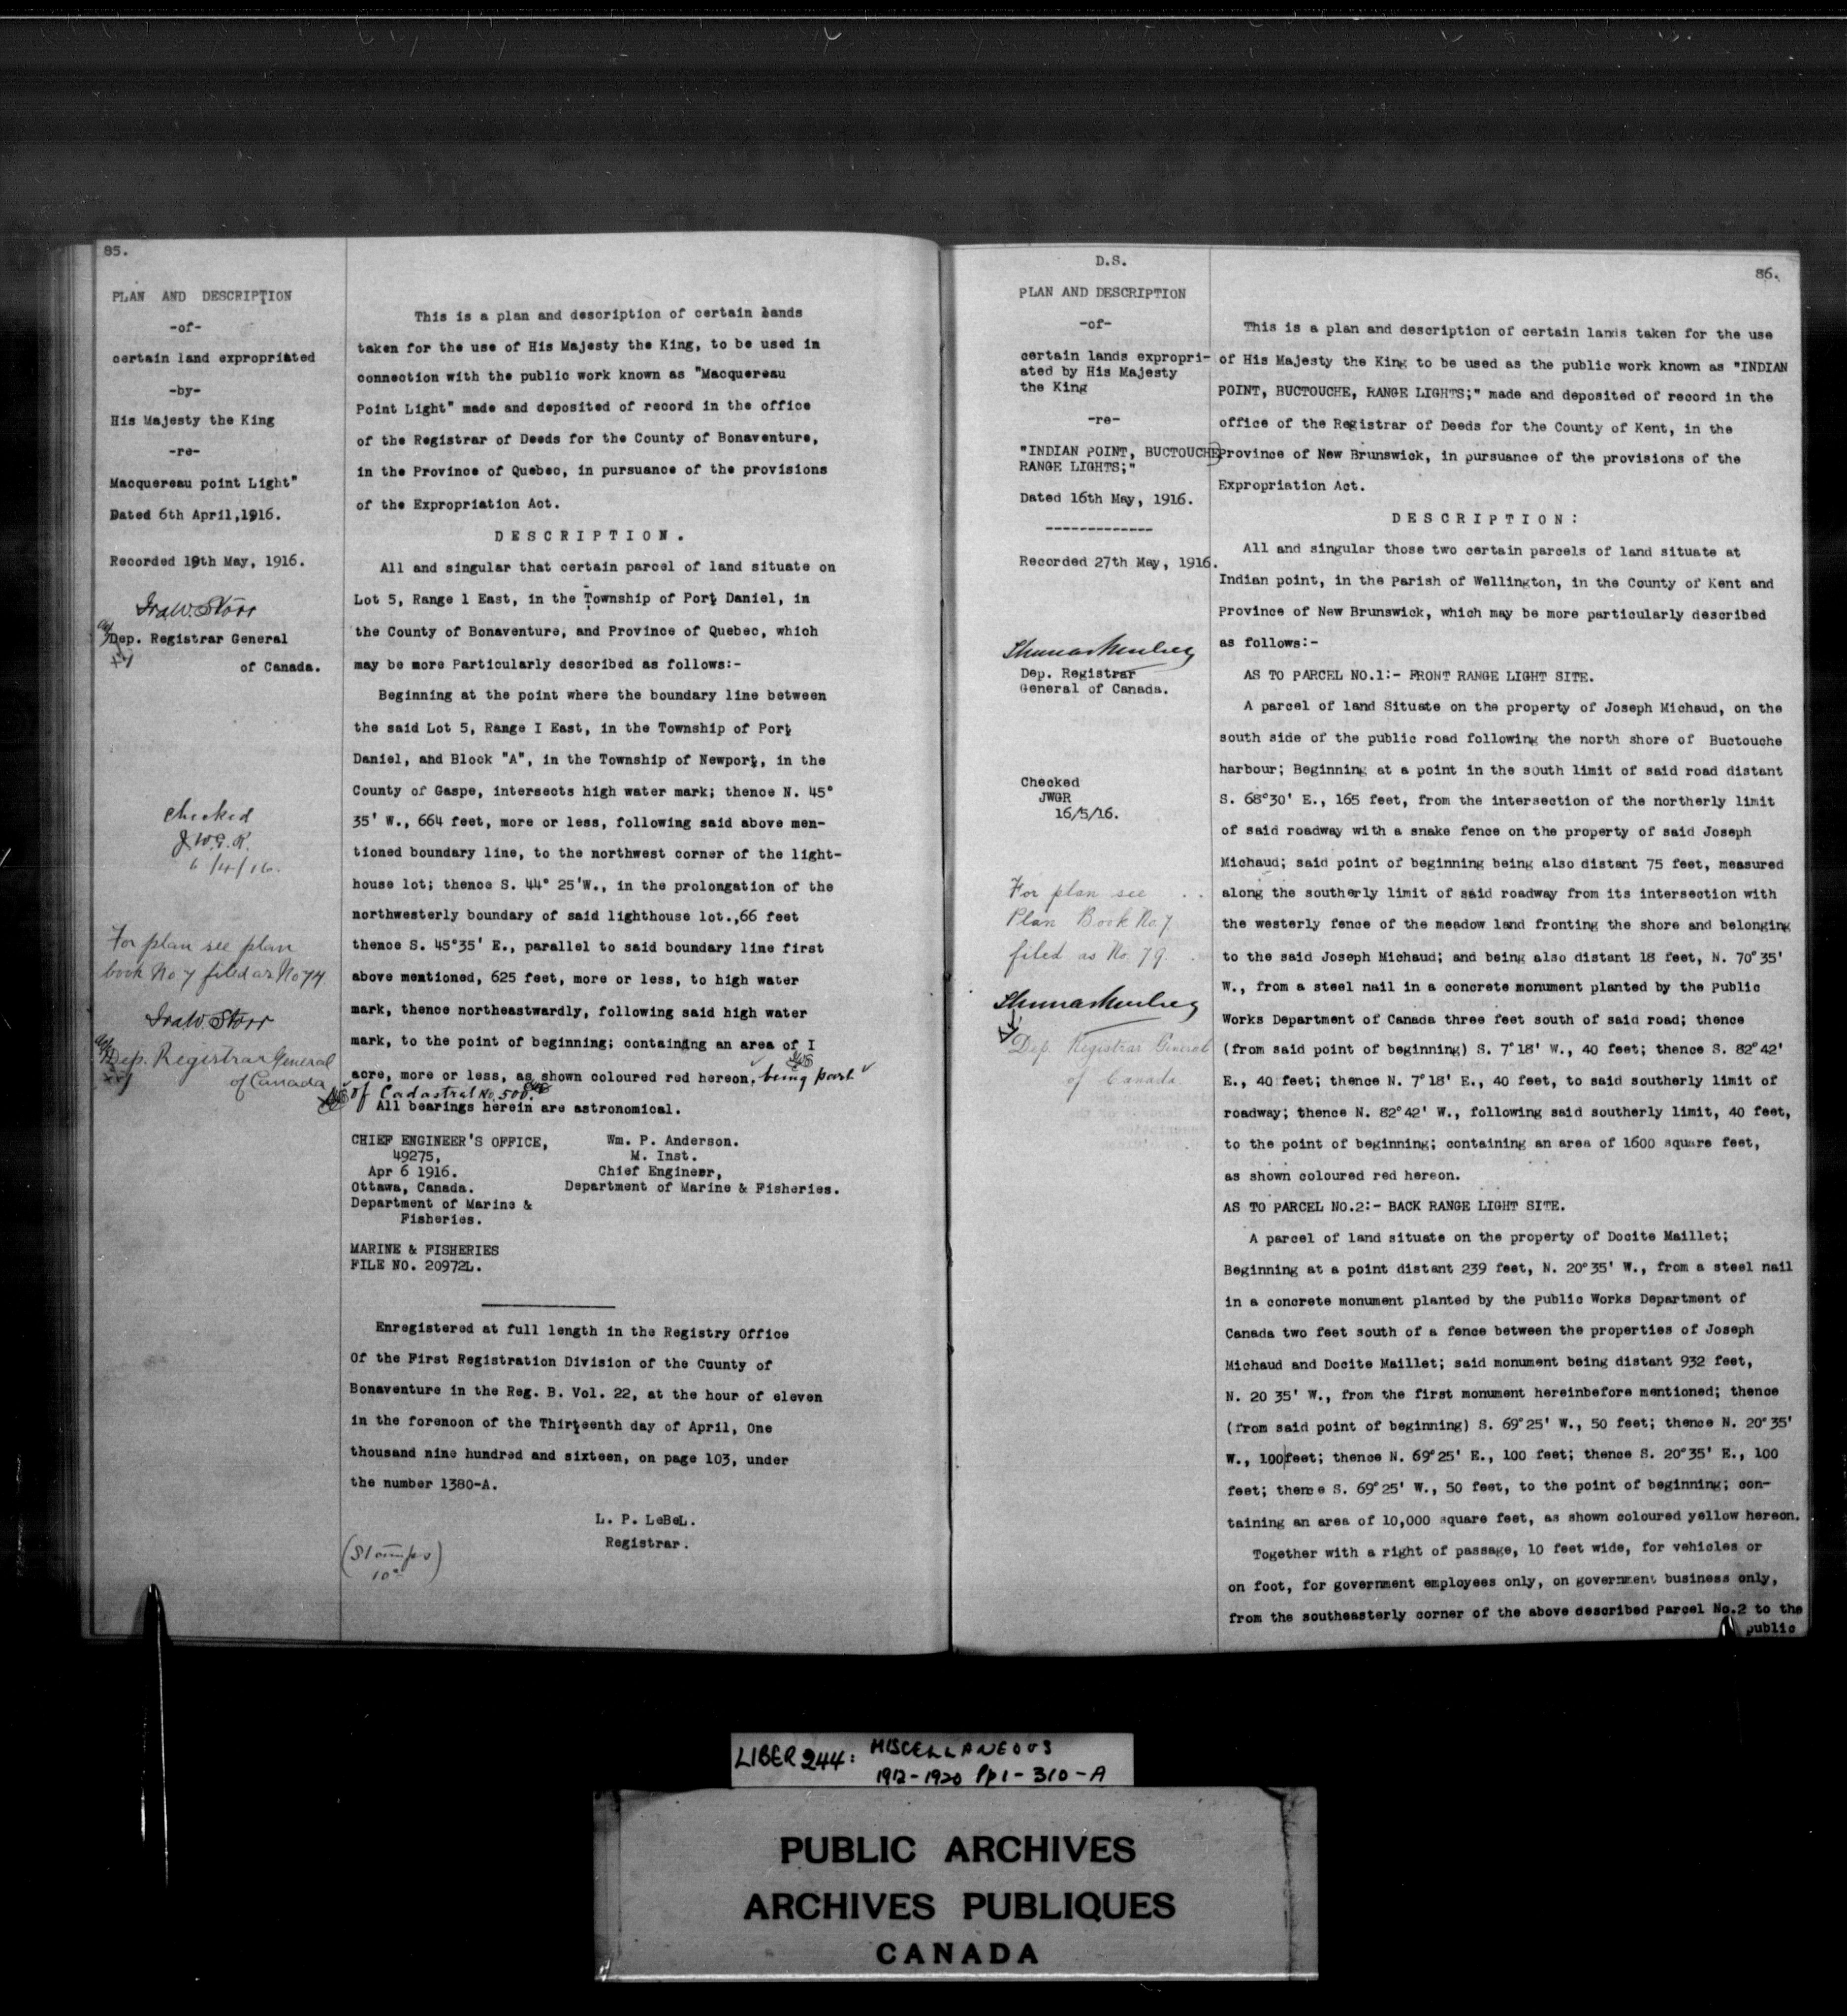 85.
PLAN AND DESCRIPTION
-of-
certain land expropriated
-by-
His Majesty the King
-re-
Macquereau point Light"
Dated 6th April,1916.
Recorded 19th May, 1916.
Ira W. Storr
Dep. Registrar General
of Canada.
Checked
J.W.G.R.
6/4/16.
For plan see plan
book No 7 filed as No 74
Ira W. Storr
Dep. Registrar General
of Canada
This is a plan and description of certain lands
taken for the use of His Majesty the King, to be used in
connection with the public work known as "Macquereau
Point Light" made and deposited of record in the office
of the Registrar of Deeds for the County of Bonaventure,
in the Province of Quebec, in pursuance of the provisions
of the Expropriation Act.
DESCRIPTION.
All and singular that certain parcel of land situate on
Lot 5, Range 1 East, in the Township of Port Daniel, in
the County of Bonaventure, and Province of Quebec, which
may be more Particularly described as follows:-
Beginning at the point where the boundary line between
the said Lot 5, Range I East, in the Township of Port
Daniel, and Block "A", in the Township of Newport, in the
County of Gaspe, intersects high water mark; thence N. 45°
35' W., 664 feet, more or less, following said above men-
tioned boundary line, to the northwest corner of the light-
house lot; thence S. 44° 25'W., in the prolongation of the
northwesterly boundary of said lighthouse lot.,66 feet
thence S. 45°35' E., parallel to said boundary line first
above mentioned, 625 feet, more or less, to high water
mark, thence northeastwardly, following said high water
mark, to the point of beginning; containing an area of I
acre, more or less, as shown coloured red hereon, being part
of Cadastral No. 500.
All bearings herein are astronomical.
CHIEF ENGINEER'S OFFICE,
49275,
Apr 6 1916.
Ottawa, Canada.
Department of Marine &
Fisheries.
Wm. P. Anderson.
M. Inst.
Chief Engineer,
Department of Marine & Fisheries.
MARINE & FISHERIES
FILE NO. 20972L.
Enregistered at full length in the Registry Office
Of the First Registration Division of the County of
Bonaventure in the Reg. B. Vol. 22, at the hour of eleven
in the forenoon of the Thirteenth day of April, One
thousand nine hundred and sixteen, on page 103, under
the number 1380-A.
L. P. LeBeL.
Registrar.
(Stamps)
10c
D.S.
86.
PLAN AND DESCRIPTION
-of-
certain lands expropri-
ated by His Majesty
the King
-re-
"INDIAN POINT, BUCTOUCHE
RANGE LIGHTS;"
Dated 16th May, 1916.
-------------
Recorded 27th May, 1916.
Dep. Registrar
General of Canada.
Checked
JWGR
16/5/16.
For plan see
Plan Book No 7
filed as No. 79.
Dep. Registrar General
of Canada
This is a plan and description of certain lands taken for the use
of His Majesty the King to be used as the public work known as "INDIAN
POINT, BUCTOUCHE, RANGE LIGHTS;" made and deposited of record in the
office of the Registrar of Deeds for the County of Kent, in the
Province of New Brunswick, in pursuance of the provisions of the
Expropriation Act.
DESCRIPTION:
All and singular those two certain parcels of land situate at
Indian point, in the Parish of Wellington, in the County of Kent and
Province of New Brunswick, which may be more particularly described
as follows:-
AS TO PARCEL NO.1:- FRONT RANGE LIGHT SITE.
A parcel of land Situate on the property of Joseph Michaud, on the
south side of the public road following the north shore of Buctouche
harbour; Beginning at a point in the south limit of said road distant
S. 68°30' E., 165 feet, from the intersection of the northerly limit
of said roadway with a snake fence on the property of said Joseph
Michaud; said point of beginning being also distant 75 feet, measured
along the southerly limit of said roadway from its intersection with
the westerly fence of the meadow land fronting the shore and belonging
to the said Joseph Michaud; and being also distant 18 feet, N. 70°35'
W., from a steel nail in a concrete monument planted by the Public
Works Department of Canada three feet south of said road; thence
(from said point of beginning) S. 7°18' W., 40 feet; thence S. 82°42'
E., 40 feet; thence N. 7°18' E., 40 feet, to said southerly limit of
roadway; thence N. 82°42' W., following said southerly limit, 40 feet,
to the point of beginning; containing an area of 1600 square feet,
as shown coloured red hereon.
AS TO PARCEL NO.2:- BACK RANGE LIGHT SITE.
A parcel of land situate on the property of Docite Maillet;
Beginning at a point distant 239 feet, N. 20°35' W., from a steel nail
in a concrete monument planted by the Public Works Department of
Canada two feet south of a fence between the properties of Joseph
Michaud and Docite Maillet; said monument being distant 932 feet,
N. 20 35' W., from the first monument hereinbefore mentioned; thence
(from said point of beginning) S. 69°25' W., 50 feet; thence N. 20°35'
W., 100 feet; thence N. 69°25' E., 100 feet; thence S. 20°35' E., 100
feet; thence S. 69°25' W., 50 feet, to the point of beginning; con-
taining an area of 10,000 square feet, as shown coloured yellow hereon.
Together with a right of passage, 10 feet wide, for vehicles or
on foot, for government employees only, on government business only,
from the southeasterly corner of the above described Parcel No.2 to the
public
LIBER 244: MISCELLANEOUS
1912-1920 Pp 1-310-A
PUBLIC ARCHIVES
ARCHIVES PUBLIQUES
CANADA